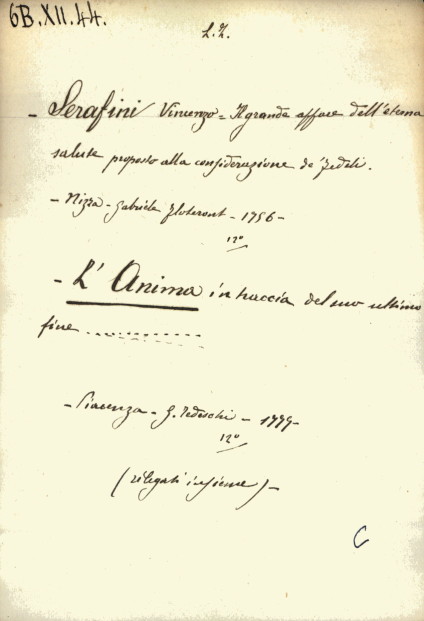 6B.XII.44.
L.Z.
- Serafini Vincenzo = Il grande affare dell'eterna
salute proposto alla considerazione de' fedeli.
- Nizza - Gabriele Floteront - 1756 -
12º
- L'Anima in traccia del suo ultimo
fine ..............
- Piacenza - G. Tedeschi - 1779 -
12º
(rilegati insieme) -
C